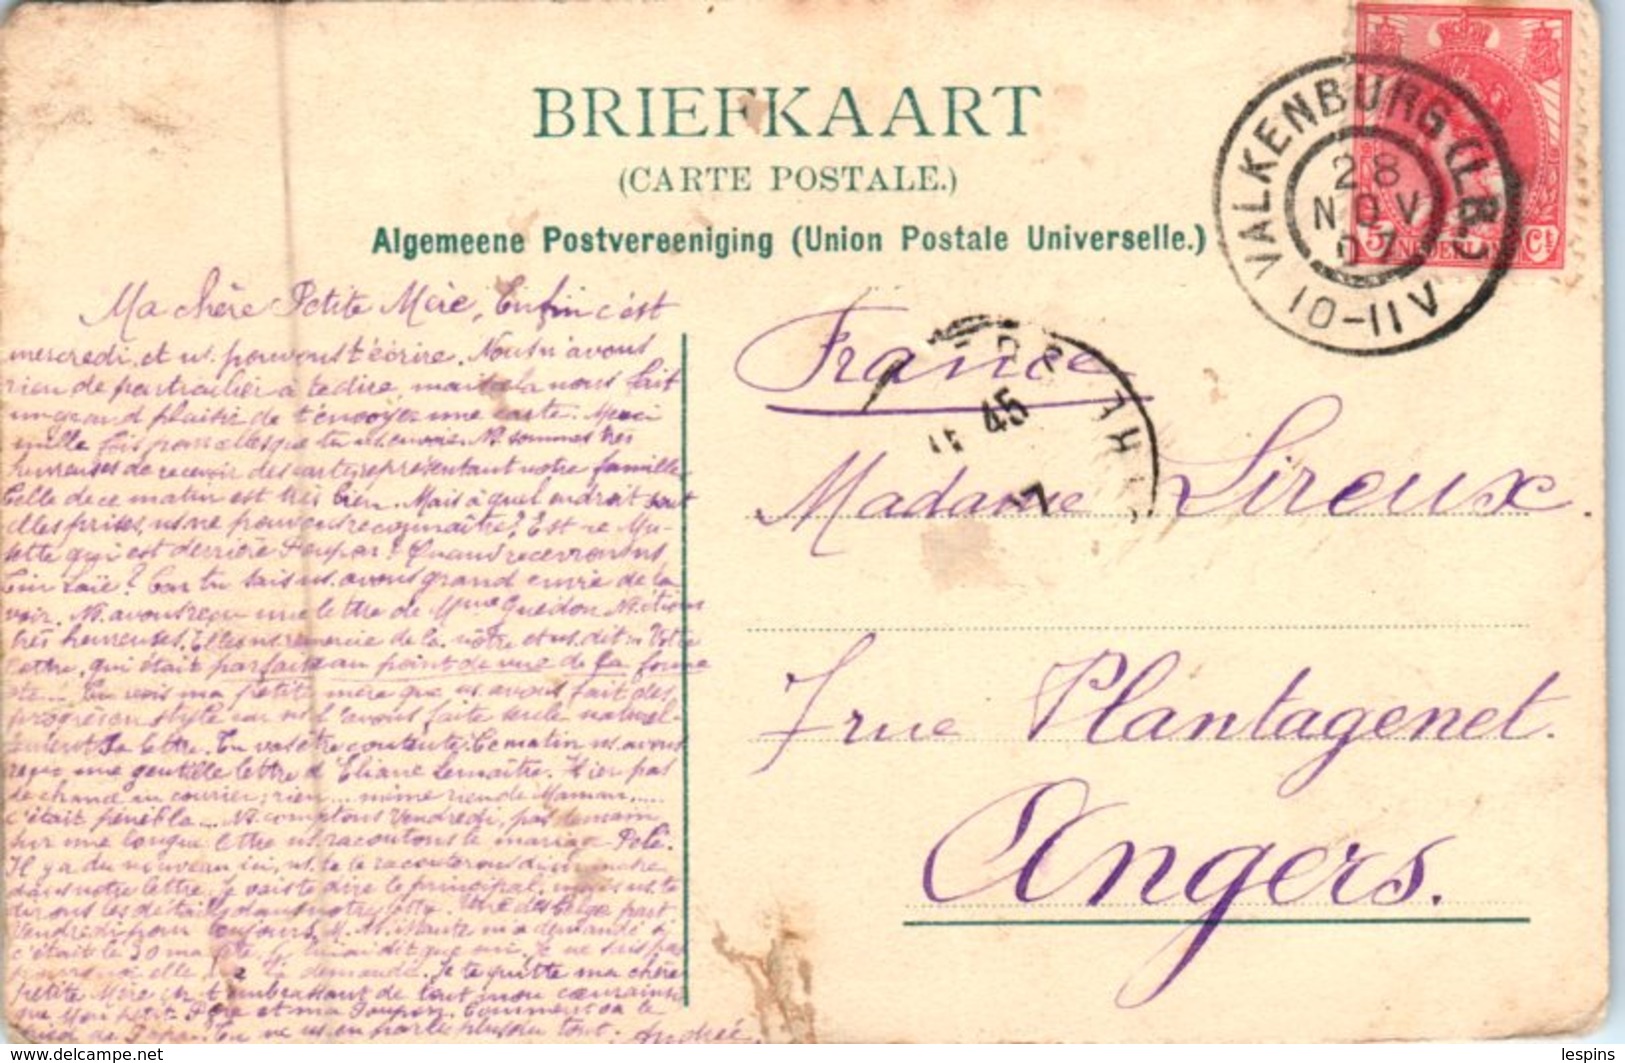 BRIEFKAART
(CARTE POSTALE.)
Algemeene Postvereeniging (Union Postale Universelle.)
VALKENBURG (LB.)
28
NOV
07
10-11V
5 NEDERLAND Ct
45
7
France
Madame Lireux
7 rue Plantagenet.
Angers.
Ma chère Petite Mère, Enfin c'est
mercredi et ns. pouvons t'écrire. Nous n'avons
rien de particulier à te dire, mais cela nous fait
un grand plaisir de t'envoyer une carte. Merci
mille fois pour celles que tu ns. envoies. Ns. sommes très
heureuses de recevoir des cartes représentant notre famille
Celle de ce matin est très bien. Mais à quel endroit sont
elles prises, ns. ne pouvons reconnaître? Est-ce Mu-
sette qui est derrière Poupon? Quand recevrons ns
Car tu sais ns. avons grand envie de la
voir. Ns. avons reçu une lettre de Mme Guédon Ns. étions
très heureuses. Elle ns. remercie de la nôtre et ns. dit: Votre
lettre, qui était parfaite au point de vue de la forme
etc... Tu vois ma petite mère que ns. avons fait des
progrès en style car ns. l'avons faite seule naturel-
lement la lettre. Tu vas être contente. Ce matin ns. avons
reçu une gentille lettre d'Eliane Lemaître. Hier pas
de chance au courrier; rien.... même rien de Maman.....
c'était pénible... Ns. comptons Vendredi, pas demain
sur une longue lettre ns. racontant le mariage Polé.
Il y a du nouveau ici, ns. te le raconterons dimanche
dans notre lettre, je vais te dire le principal, mais ns. te
dirons les détails dans notre lettre. Une des Belges part
Vendredi pour toujours. M. M. m'a demandé si
c'était le 30 ma fête. Je lui ai dit que oui. Je ne sais pas
pourquoi elle me l'a demandé. Je te quitte ma chère
petite Mère en t'embrassant de tout mon cœur ainsi
que Mon petit Père et ma Poupon. Comment va le
pied de Papa. Tu ne ns. en parles plus du tout. Andrée
lespins